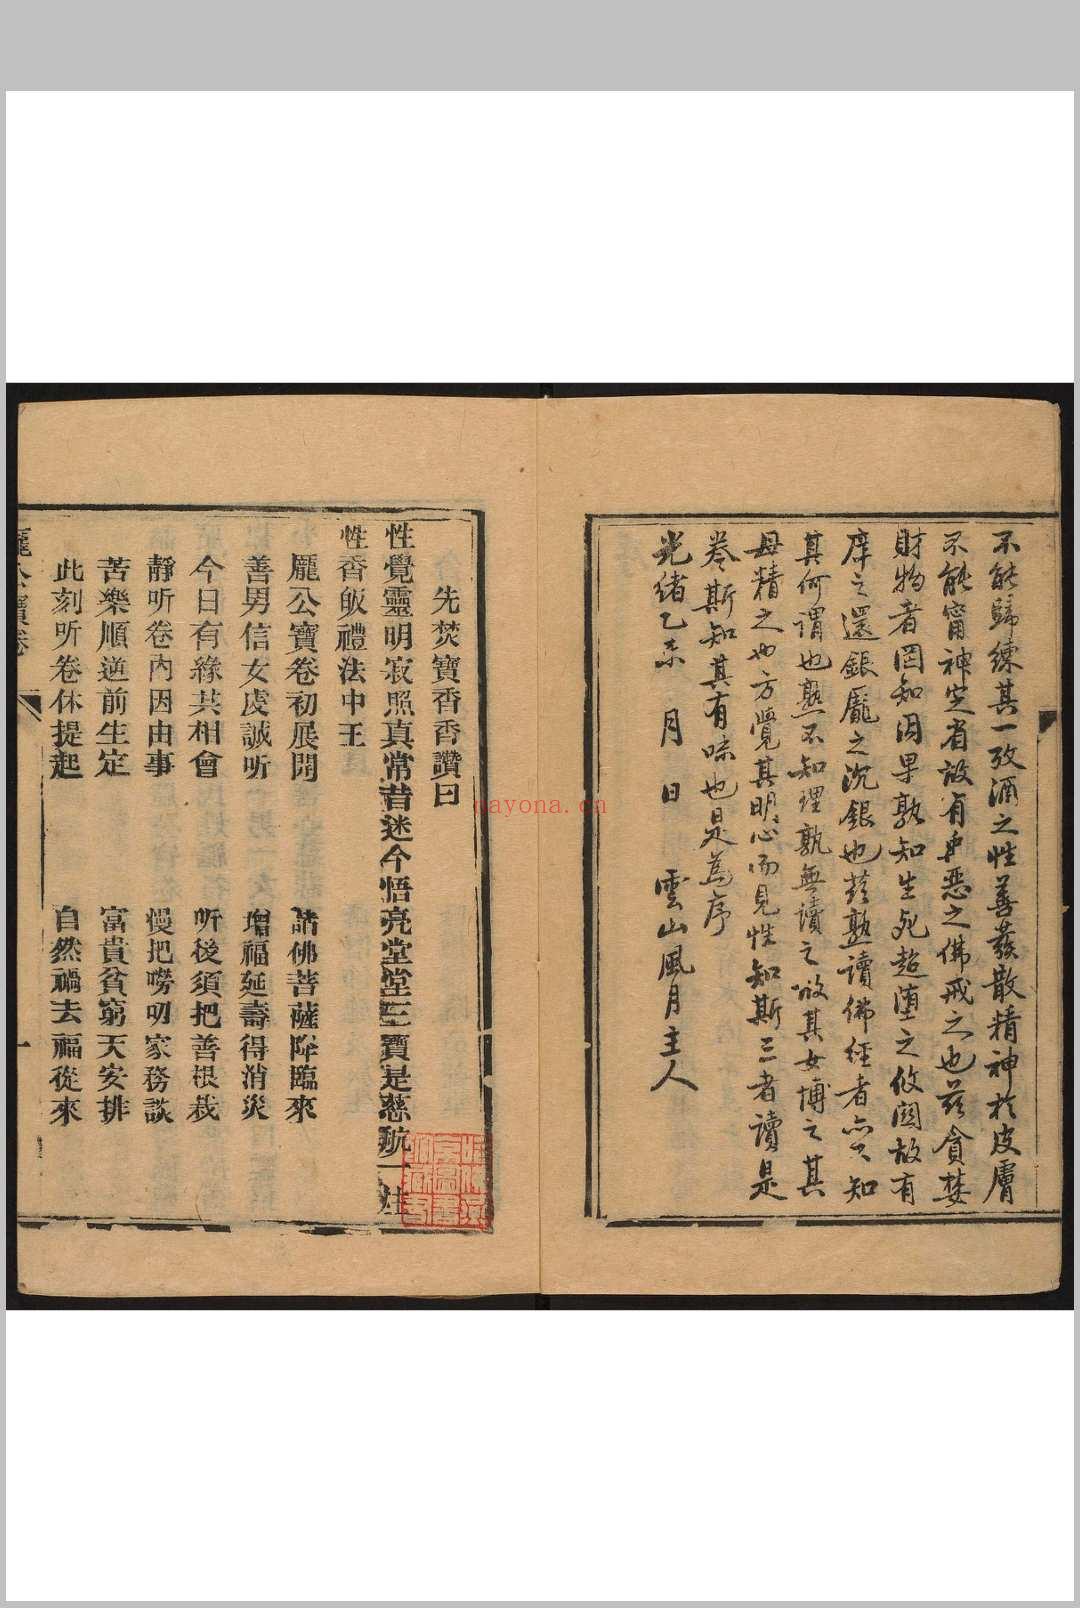 不能歸練其一致涵之性善蕟散精神於皮膚
不能甯神定省故有尹惡之佛戒之也茲貪婪
財物者罔知因果孰知生死超墮之攸関故有
庠之還銀龐之沉銀也茲孰讀佛經者亦不知
其何謂也熟不知理孰無讀之傚其女博之其
毋精之也方覺其明心而見性知斯三者讀是
卷斯知其有味也是為序
光緒乙未 月 日 雲山風月主人
先焚寶香香讚曰
性覺靈明寂照真常昔迷今悟亮堂堂三寶是慈航一炷
性香皈禮法中王
龐公寶卷初展開 諸佛菩薩降臨來
善男信女虔誠听 增福延壽得消災
今日有緣共相會 听後須把善根栽
靜听卷內因由事 慢把嘮叨家務談
苦樂順逆前生定 富貴貧窮天安排
此刻听卷休提起 自然禍去福從來
龐公寶卷
一
nayona.cn